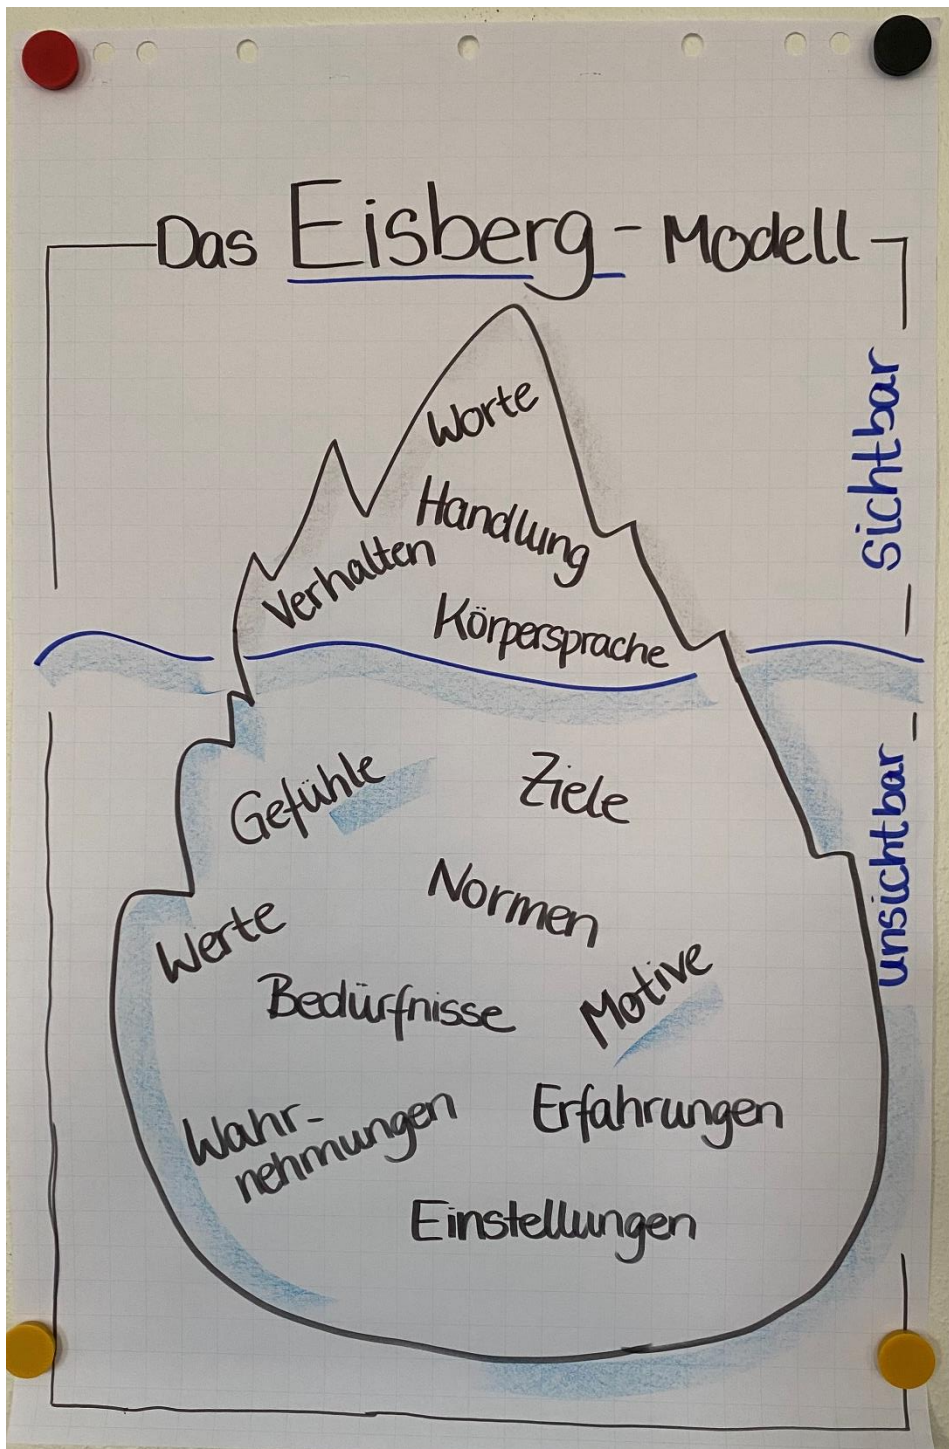 Das Eisberg - Modell
Worte
Handlung
Verhalten
Körpersprache
sichtbar
unsichtbar
Gefühle
Ziele
Normen
Werte
Bedürfnisse
Motive
Wahr-
nehmungen
Erfahrungen
Einstellungen